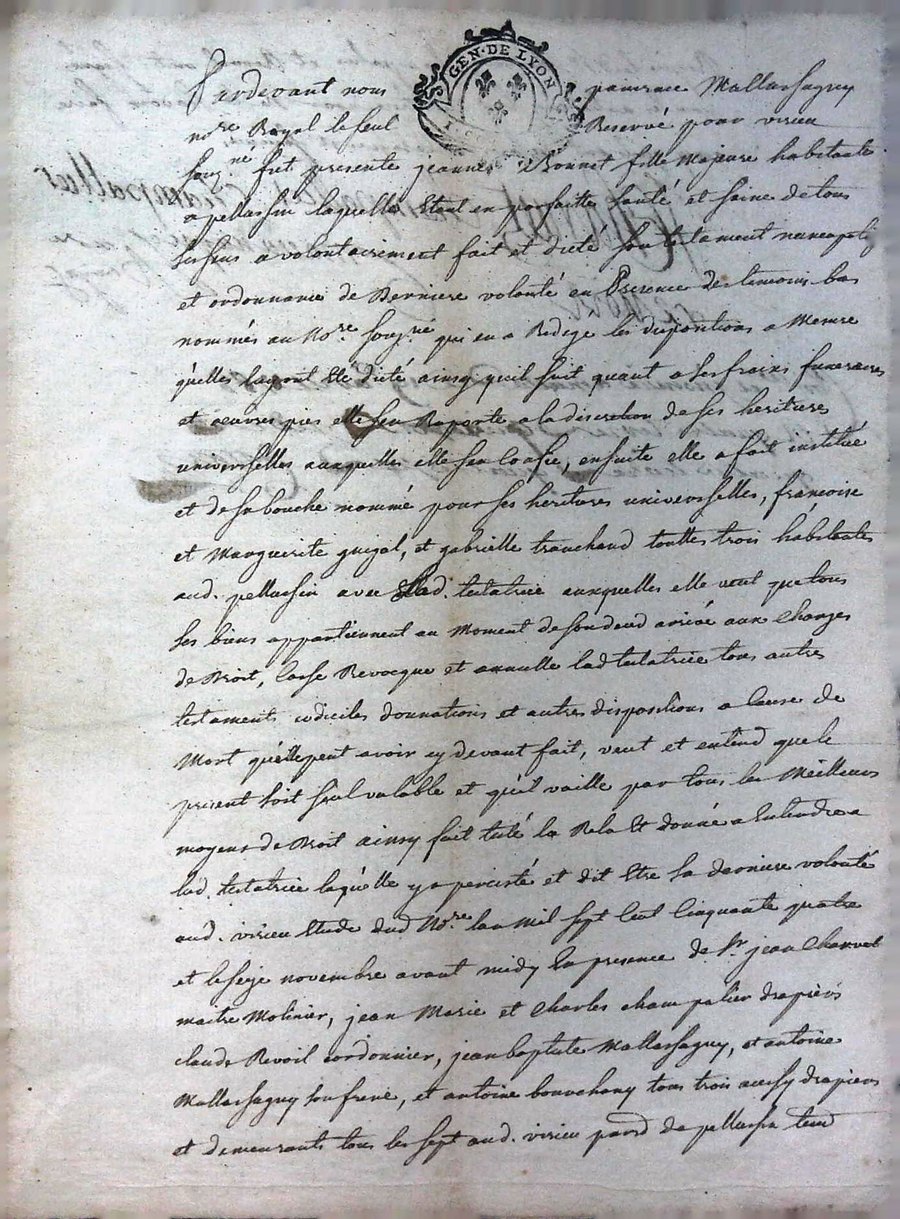 GEN·DE LYON
Pardevant nous pancrace Mallassagny
nore Royal le seul Reservé pour virieu
soug.ne fut presente jeanne Bonnet fille Majeure habitante
a pellussin laquelle Etent en parfaitte santé et saine de tous
ses sens a volontairement fait et dicté son testament nuncupatif
et ordonnance de Derniere volonté en Presence des temoins bas
nommés au Nore. sousne qui en a Redigé les dispositions a Mesure
quelles luy ont Eté dicté ainsy quil suit quant a ses fraix funeraires
et oeuvres pies elle sen Raporte a la discretion de ses heritieres
universelles auxquelles elle sen Confie, ensuitte elle a fait institué
et de sa bouche nommé pour ses heritieres universelles, françoise
et Marguerite guigal, et gabrielle tranchand touttes trois habitantes
aud. pellussin avec lad. testatrice auxquelles elle veut que tous
ses biens appartiennent au Moment de son deced arrivé aux Charges
de Droit, Casse Revocque et annulle lad testatrice tous autres
testaments codiciles donnations et autres dispositions a Cause de
Mort quelle peut avoir cy devant fait, veut et entend que le
present soit seul valable et quil vaille par tous les Meilleurs
moyens de Droit ainsy fait lû la Rela Et donné a Entendre a
lad. testatrice laquelle y a percisté et dit Etre sa derniere volonté
aud. virieu Etude dud Nore. lan Mil sept Cent Cinquante quatre
et le seize novembre avant midy En presence de Sr jean Charvet
maitre Molinier, jean Marie et Charles champalier drapiers
claude Revoil cordonnier, jean baptiste Mallassagny, et antoine
Mallassagny son frere, et antoine bonnchany tous trois aussy drapiers
et demeurants tous les sept aud. virieu parsse de pellussin tem